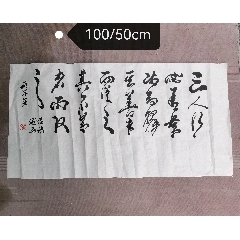 100/50cm
三人行
必有我
师焉择
其善者
而従之
其不善
者而改
之